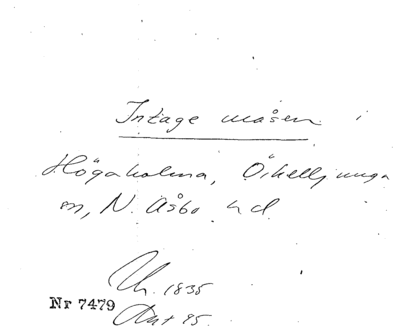 Intage måsen i
Högaholma, Örkelljunga
sn, N. Åsbo hd
1835
Nr 7479